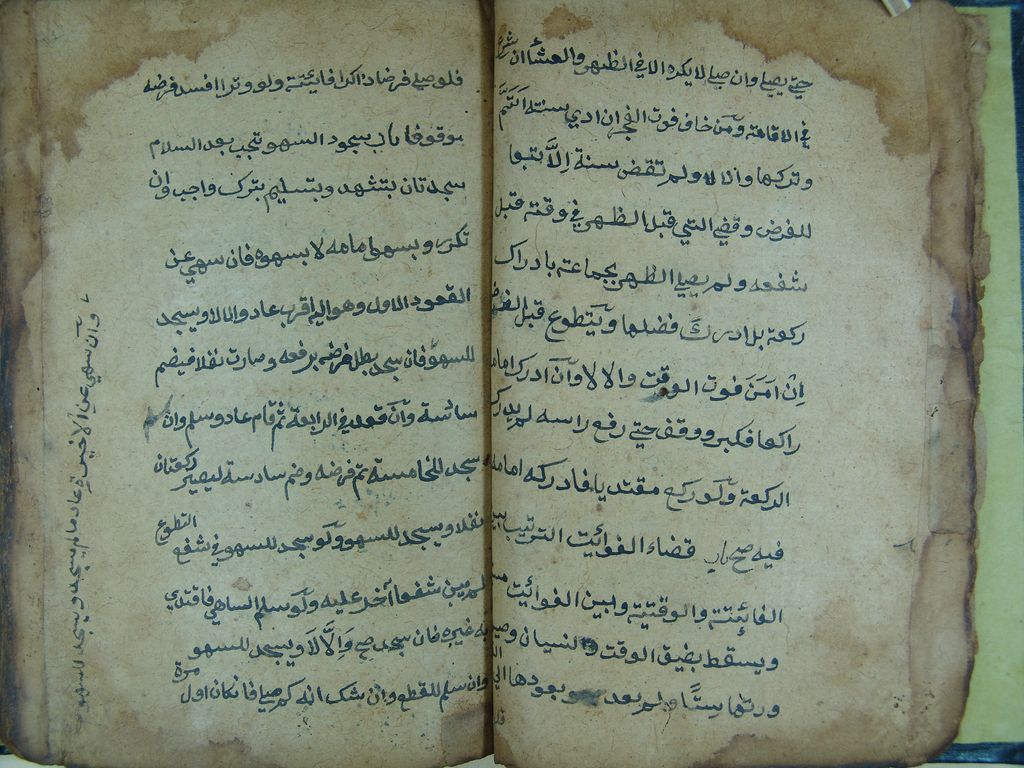 حتي يصلي وان صلي لا يكره الا في الظهر والعشاء ان شرع
في الاقامة ومن خاف فوت الفجر ان ادي سنته ائتم
وتركها والا لا ولم تقض سنة الا تبعا
للفرض وقضي التي قبل الظهر في وقته قبل
شفعه ولم يصلي الظهر بجماعته بادراك
ركعة بل ادرك فضلها ويتطوع قبل الفرض
ان امن فوت الوقت والا لا وان ادرك امامه
راكعا فكبر ووقف حتي رفع راسه لم يدرك
الركعة ولو ركع مقتديا فادركه امامه
فيه صح باب قضاء الفوائت الترتيب بين
الفائتة والوقتية وبين الفوائت
ويسقط بضيق الوقت والنسيان وصير
ورتها ستا ولم يعد بعودها الي
فلو صلي فرضا ذاكرا فايتة ولو وترا افسد فرضه
موقوفا باب سجود السهو تجب بعد السلام
سجدتان بتشهد وبتسليم بترك واجب وان
تكرر وبسهو امامه لا بسهوه فان سهي عن
القعود الاول وهو اليه اقرب عاد والا لا ويسجد
للسهو فان سجد بطل فرضه برفعه وصارت نفلا فيضم
سادسة وان قعد في الرابعة ثم قام عاد وسلم وان
سجد للخامسة تم فرضه وضم سادسة ليصير ركعتان
نفلا ويسجد للسهو ولو سجد للسهو في شفع التطوع
لم يبن شفعا آخر عليه ولو سلم الساهي فاقتدي
به غيره فان سجد صح والا لا ويسجد للسهو
وان سلم للقطع وان شك انه كم صلي فان كان اول مرة
وان سهي عن الاخيرة عاد مالم يسجد ويسجد للسهو